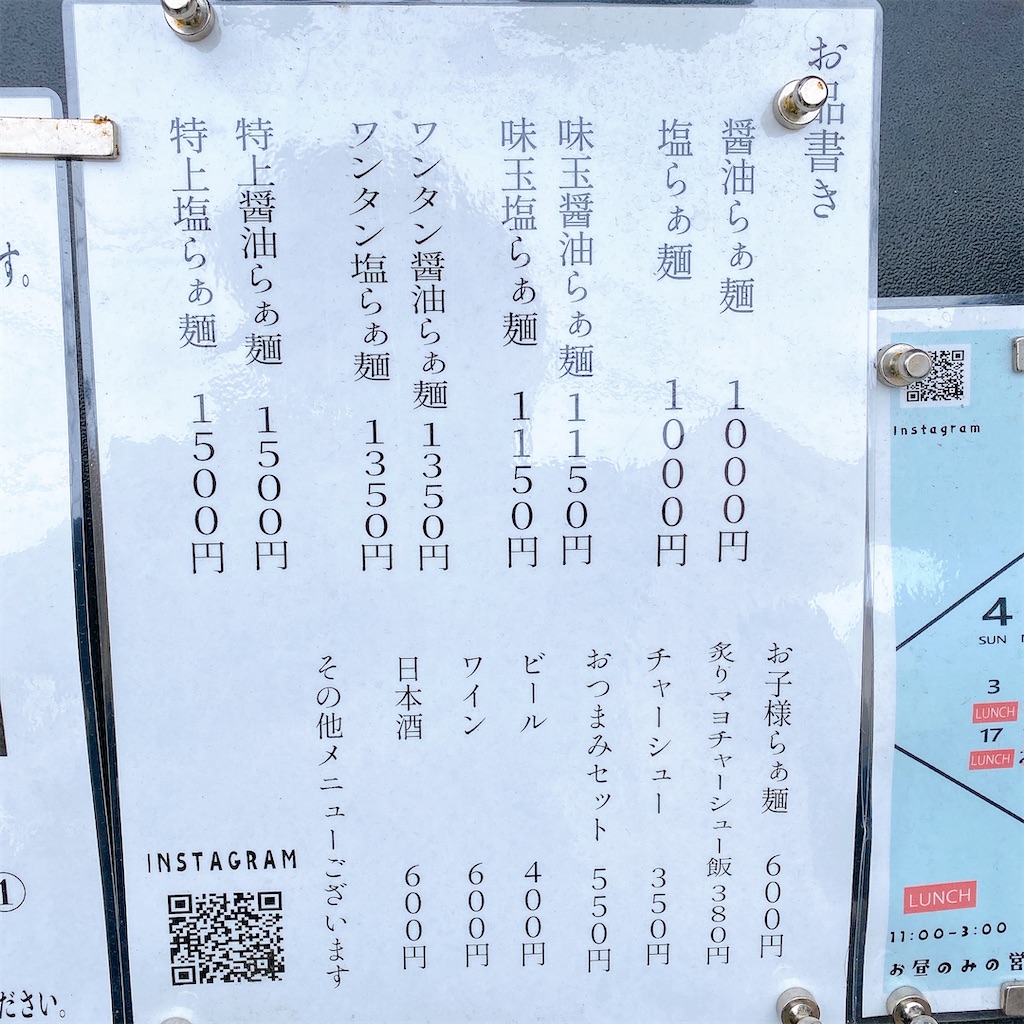 お品書き
醤油らぁ麺 1000円
塩らぁ麺 1000円
味玉醤油らぁ麺 1150円
味玉塩らぁ麺 1150円
ワンタン醤油らぁ麺 1350円
ワンタン塩らぁ麺 1350円
特上醤油らぁ麺 1500円
特上塩らぁ麺 1500円
お子様らぁ麺 600円
炙りマヨチャーシュー飯 380円
チャーシュー 350円
おつまみセット 550円
ビール 400円
ワイン 600円
日本酒 600円
その他メニューございます
INSTAGRAM
す。
1
ださい。
Instagram
4
SUN
3
LUNCH
17
LUNCH
LUNCH
11:00-3:00
お昼のみの営